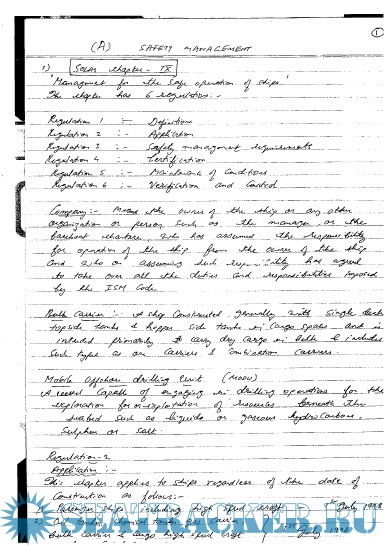 1
(A) SAFETY MANAGEMENT
1) SOLAS chapter - IX
'Management for the safe operation of ships'
The chapter has 6 regulations:-
Regulation 1 :- Definitions
Regulation 2 :- Application
Regulation 3 :- Safety management requirements
Regulation 4 :- Certification
Regulation 5 :- Maintenance of Conditions
Regulation 6 :- Verification and Control
Company:- Means the owner of the ship or any other
organization or person such as the manager, or the
bareboat charterer, who has assumed the responsibility
for operation of the ship from the owner of the ship
and who on assuming such responsibility has agreed
to take over all the duties and responsibilities imposed
by the ISM Code.
Bulk carrier:- A ship constructed generally with single deck
topside tanks & hopper side tanks in cargo spaces and is
intended primarily to carry dry cargo in bulk & includes
such types as ore carriers & combination carriers.
Mobile offshore drilling unit (MODU)
A vessel capable of engaging in drilling operations for the
exploration for or exploitation of resources beneath the
seabed such as liquids or gaseous hydrocarbons.
Sulphur or salt.
Regulation-2
Application:-
This chapter applies to ships regardless of the date of
Construction as follows:-
1) Passenger ships including high speed craft July 1998
2) Oil tankers, chemical tankers, gas carriers
Bulk carriers & cargo high speed craft July 1998
SEATRACKER.RU